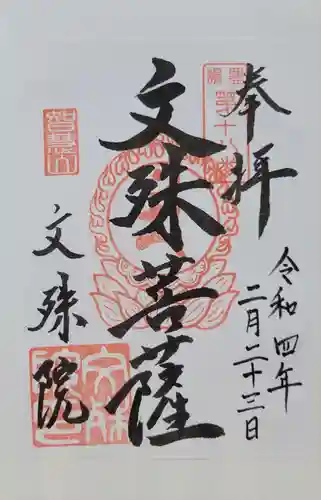 奉拝
令和四年
二月二十三日
文殊菩薩
智慧
文殊院